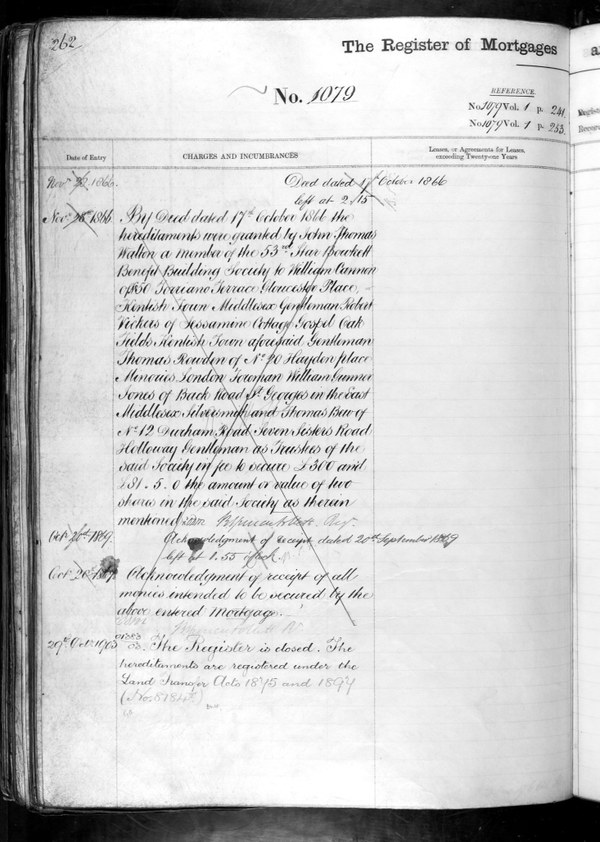 262
The Register of Mortgages
No. 1079
REFERENCE.
No. 1079 Vol. 1 p. 241
No. 1079 Vol. 1 p. 253
Date of Entry
CHARGES AND INCUMBRANCES
Leases, or Agreements for Leases,
exceeding Twenty-one Years
Novr 1866. Deed dated 17th October 1866
left at 2.15
Nov. 1866 By Deed dated 17th October 1866 the
hereditaments were granted by John Thomas
Walton a member of the 53rd Star Bowkett
Benefit Building Society to William Cannon
of 50 Torriano Terrace Gloucester Place,
Kentish Town Middlesex Gentleman Robert
Vickers of Jessamine Cottage Gospel Oak
Fields Kentish Town aforesaid Gentleman
Thomas Rowden of No. Haydon place
Minories London Foreman William Gunner
Jones of Back Road St. Georges in the East
Middlesex Silversmith and Thomas Bew of
No. 12 Durham Road Seven Sisters Road
Holloway Gentleman as Trustees of the
said Society in fee to secure £300 and
£31.5.0 the amount or value of two
shares in the said Society as therein
mentioned
Oct. 1869. Acknowledgment of Receipt dated 20th September 1869
left at 1.55 o'clock
Oct. 1869. Acknowledgment of receipt of all
monies intended to be secured by the
above entered Mortgage.
29th Oct. 1903 The Register is closed. The
hereditaments are registered under the
Land Transfer Acts 1875 and 1897